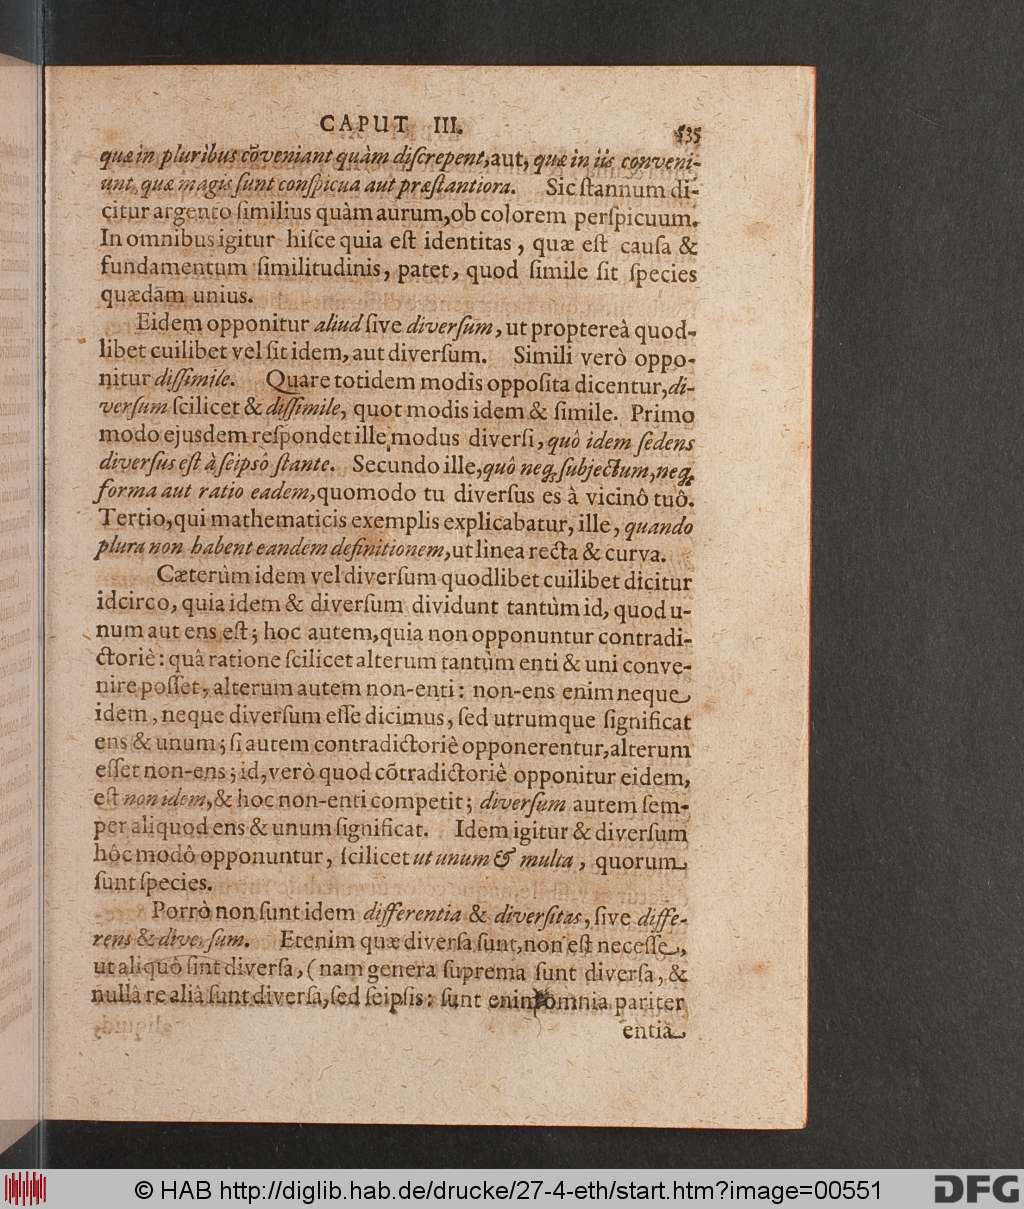 CAPUT III. 535
quæ in pluribus cõveniant quàm diſcrepent, aut, quæ in iis conveni-
unt, quæ magis ſunt conſpicua aut præſtantiora. Sic ſtannum di-
citur argento ſimilius quàm aurum, ob colorem perſpicuum.
In omnibus igitur hiſce quia eſt identitas, quæ eſt cauſa &
fundamentum ſimilitudinis, patet, quod ſimile ſit ſpecies
quædam unius.
Eidem opponitur aliud ſive diverſum, ut proptereà quod-
libet cuilibet vel ſit idem, aut diverſum. Simili verò oppo-
nitur diſſimile. Quare totidem modis oppoſita dicentur, di-
verſum ſcilicet & diſſimile, quot modis idem & ſimile. Primo
modo ejusdem reſpondet ille modus diverſi, quô idem ſedens
diverſus eſt à ſeipsô ſtante. Secundo ille, quô neq; ſubjectum, neq;
forma aut ratio eadem, quomodo tu diverſus es à vicinô tuô.
Tertio, qui mathematicis exemplis explicabatur, ille, quando
plura non habent eandem definitionem, ut linea recta & curva.
Cæterùm idem vel diverſum quodlibet cuilibet dicitur
idcirco, quia idem & diverſum dividunt tantùm id, quod u-
num aut ens eſt; hoc autem, quia non opponuntur contradi-
ctoriè: quâ ratione ſcilicet alterum tantùm enti & uni conve-
nire poſſet, alterum autem non-enti: non-ens enim neque
idem, neque diverſum eſſe dicimus, ſed utrumque ſignificat
ens & unum; ſi autem contradictoriè opponerentur, alterum
eſſet non-ens; id, verò quod cõtradictoriè opponitur eidem,
eſt non idem, & hoc non-enti competit; diverſum autem ſem-
per aliquod ens & unum ſignificat. Idem igitur & diverſum
hôc modô opponuntur, ſcilicet ut unum & multa, quorum
ſunt ſpecies.
Porrò non ſunt idem differentia & diverſitas, ſive diffe-
rens & diverſum. Etenim quæ diverſa ſunt, non eſt neceſſe,
ut aliquô ſint diverſa, (nam genera ſuprema ſunt diverſa, &
nullâ re aliâ ſunt diverſa, ſed ſeipſis: ſunt enim omnia pariter
entia
© HAB http://diglib.hab.de/drucke/27-4-eth/start.htm?image=00551
DFG